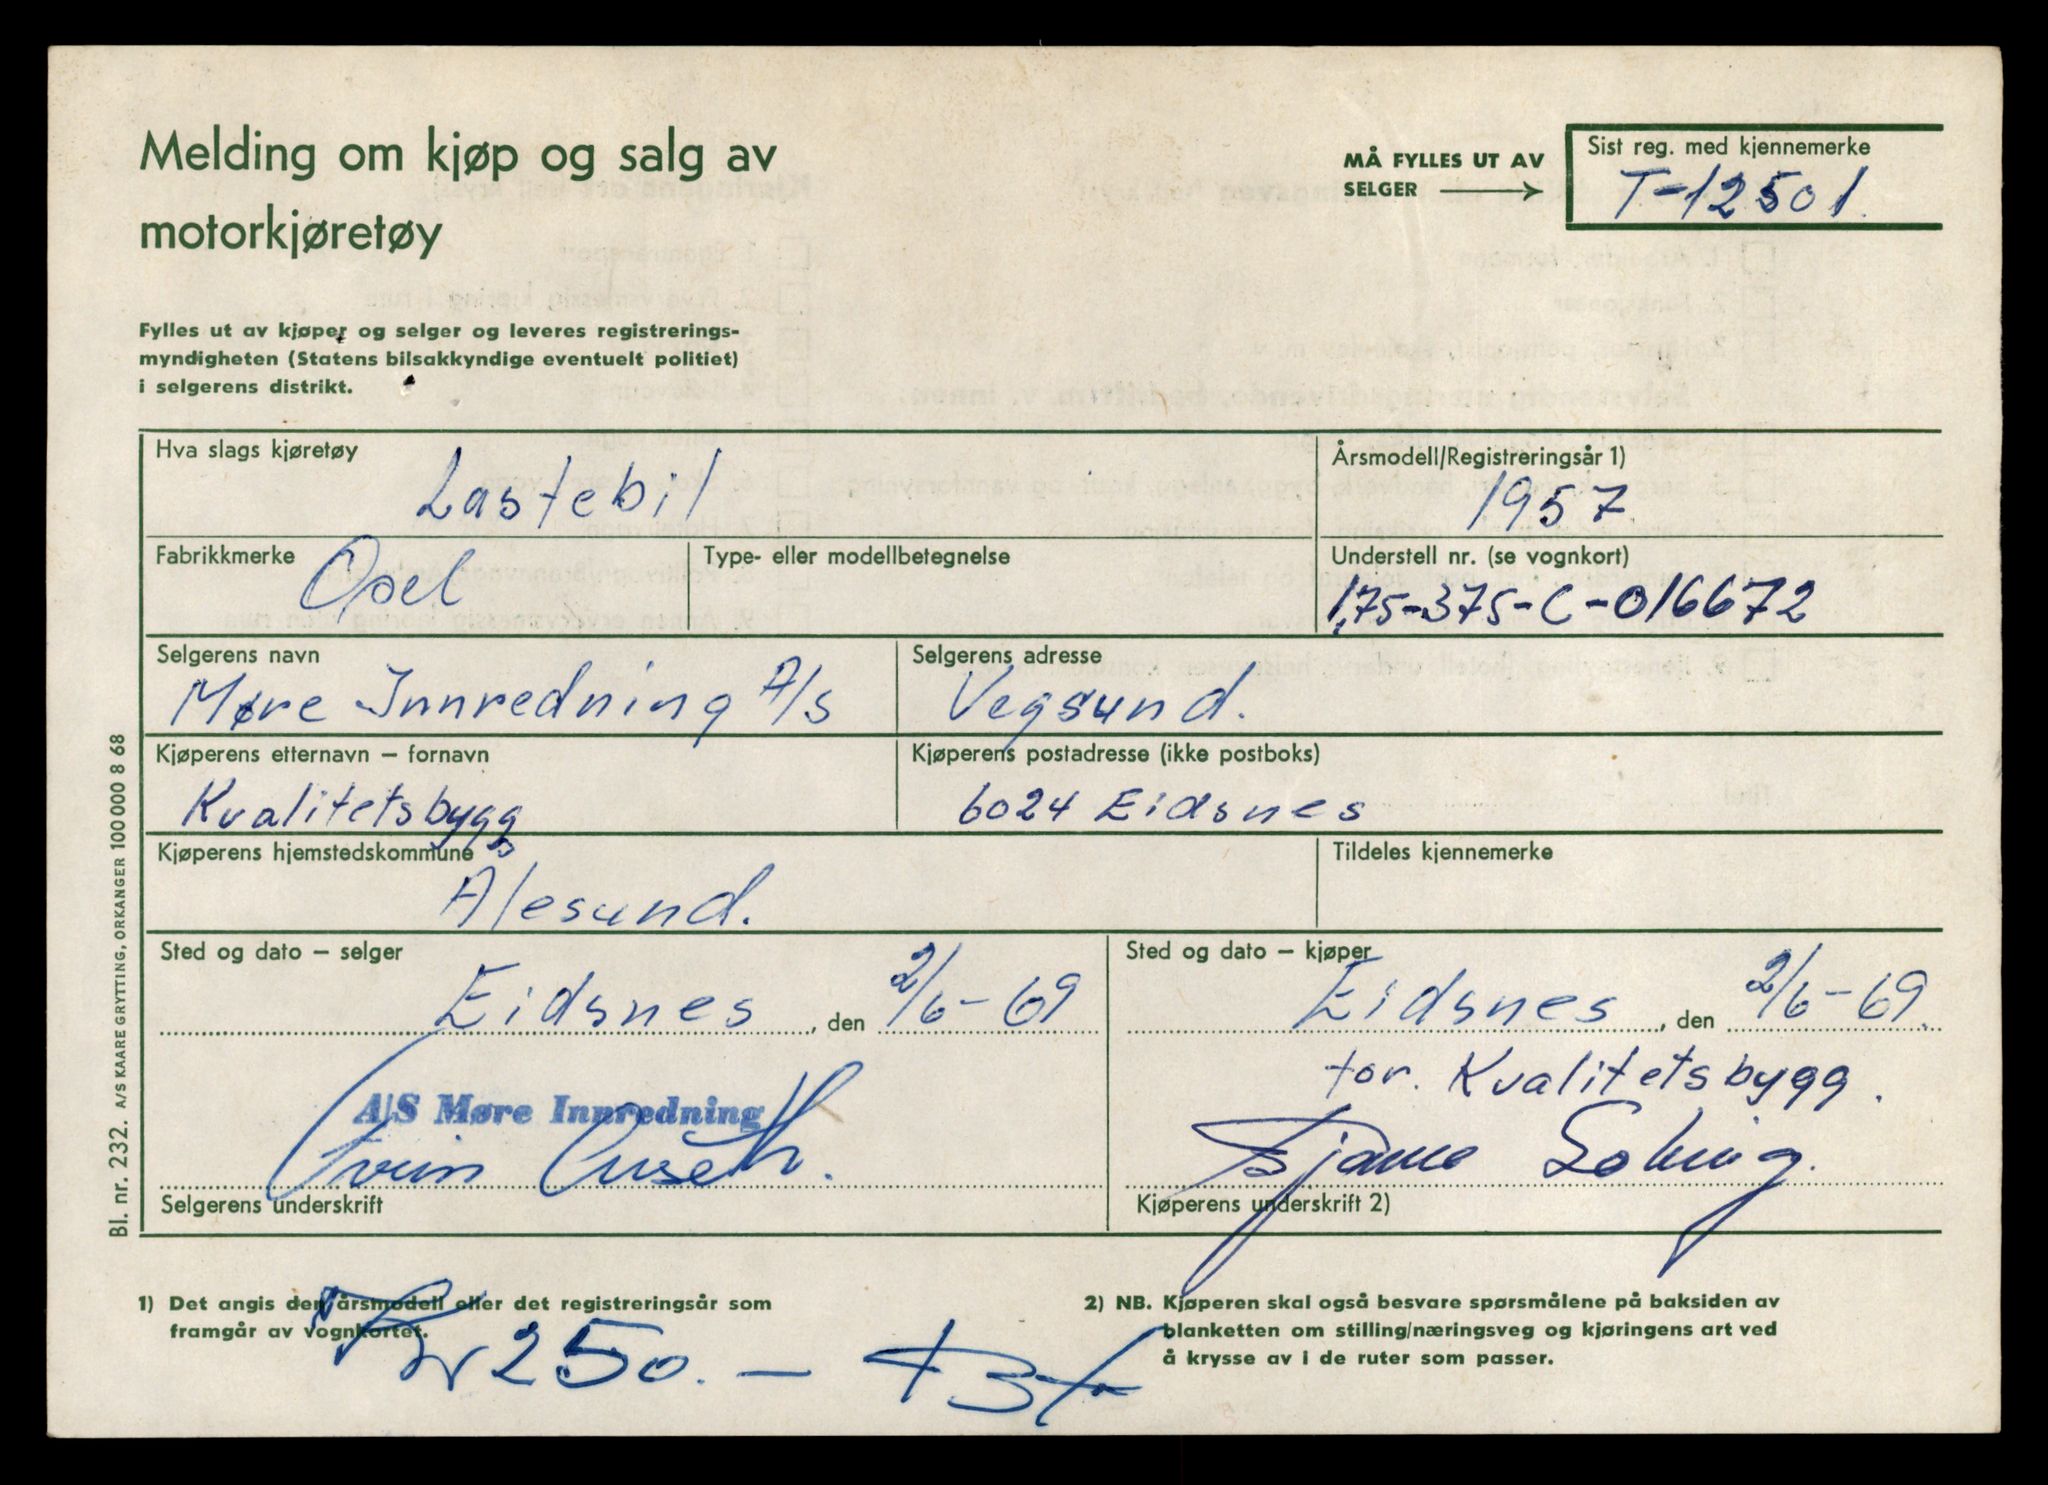 Melding om kjøp og salg av
motorkjøretøy
MÅ FYLLES UT AV
SELGER
Sist reg. med kjennemerke
T-12501.
Fylles ut av kjøper og selger og leveres registrerings-
myndigheten (Statens bilsakkyndige eventuelt politiet)
i selgerens distrikt.
Hva slags kjøretøy
Lastebil
Årsmodell/Registreringsår 1)
1957
Fabrikkmerke
Opel
Type- eller modellbetegnelse
Understell nr. (se vognkort)
1,75-375-C-016672
Selgerens navn
Møre Innredning A/s
Selgerens adresse
Vegsund.
Kjøperens etternavn – fornavn
Kvalitetsbygg
Kjøperens postadresse (ikke postboks)
6024 Eidsnes
Kjøperens hjemstedskommune
Ålesund.
Tildeles kjennemerke
Sted og dato – selger
Eidsnes, den 2/6-69
Sted og dato – kjøper
Eidsnes, den 2/6-69.
for. Kvalitetsbygg.
A/S Møre Innredning
Selgerens underskrift
Kjøperens underskrift 2)
1) Det angis den årsmodell eller det registreringsår som
framgår av vognkortet.
2) NB. Kjøperen skal også besvare spørsmålene på baksiden av
blanketten om stilling/næringsveg og kjøringens art ved
å krysse av i de ruter som passer.
Kr 250.-
Bl. nr. 232. A/S KAARE GRYTTING, ORKANGER 100 000 8 68